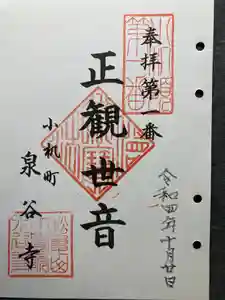 奉拝 第一番
正観世音
小机町
泉谷寺
令和四年十月廿日